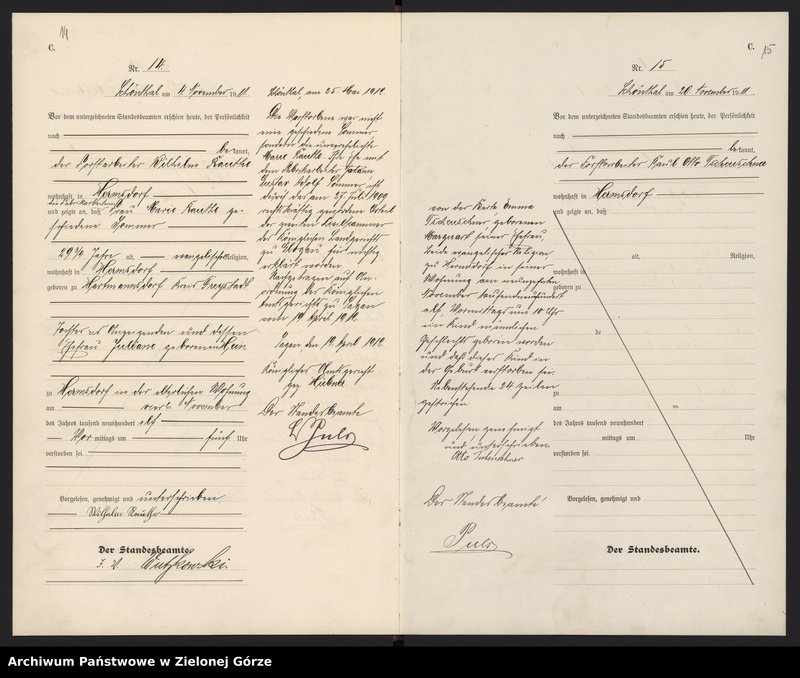 14
C.
Nr. 14.
Schönthal am 4. November 1911
Vor dem unterzeichneten Standesbeamten erschien heute, der Persönlichkeit
nach
bekannt,
der Forstarbeiter Wilhelm Rauthe
wohnhaft in Hermsdorf
und zeigte an, daß Frau Marie Rauthe ge-
schiedene Sommer
29 3/4 Jahre alt, evangelischer Religion,
wohnhaft in Hermsdorf
geboren zu Hartmannsdorf Kreis Freystadt
Tochter des Anzeigenden und dessen
Ehefrau Juliane geborenen
zu Hermsdorf in der elterlichen Wohnung
am vierten November
des Jahres tausend neunhundert elf
Vor mittags um fünf Uhr
verstorben sei.
Vorgelesen, genehmigt und unterschrieben
Wilhelm Rauthe
Der Standesbeamte.
I. V.
Schönthal, am 25 Mai 1912
Die Verstorbene war nicht
eine geschiedene Sommer
sondern die unverehelichte
Marie Rauthe. Die Ehe mit
dem
Gustav Adolf Sommer ist
durch das am 27. Juli 1909
rechtskräftig gewordene Urteil
der zweiten Zivilkammer
des Königlichen Landgerichts
zu Glogau für nichtig
erklärt worden
Nachgetragen auf An-
ordnung des Königlichen
Amtsgerichts zu Sagan
vom 19 April 1912
Sagan, den 19. April 1912
Königliches Amtsgericht
gez.
Der Standesbeamte
Puls
C.
15
Nr. 15
Schönthal am 20 November 1911
Vor dem unterzeichneten Standesbeamten erschien heute, der Persönlichkeit
nach
bekannt,
der Forstarbeiter Paul Otto Tscheuschner
wohnhaft in Hermsdorf
und zeigte an, daß
von der Emma
Tscheuschner geborenen
Marquart seiner Ehefrau,
beide evangelischer Religion
zu Hermsdorf in seiner
Wohnung am neunzehnten
November tausendneunhundert
elf Vormittags um 10 Uhr
ein Kind männlichen
Geschlechts geboren worden
und daß dieses Kind in
der Geburt verstorben sei.
Nebenstehende 24 Zeilen
gestrichen
Vorgelesen genehmigt
und unterschrieben
Otto Tscheuschner
Der Standesbeamte
Puls
alt, Religion,
wohnhaft in
geboren zu
de
zu
am
des Jahres tausend neunhundert
mittags um Uhr
verstorben sei.
Vorgelesen, genehmigt und
Der Standesbeamte.
Archiwum Państwowe w Zielonej Górze